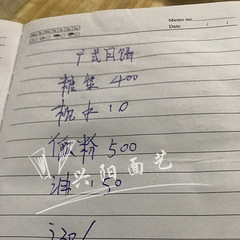 Memo no.
Date
广式月饼
糖浆 400
枧水 10
低粉 500
油 150
兴阳面艺